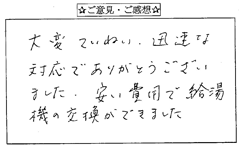 ☆ご意見・ご感想☆
大変ていねい、迅速な
対応でありがとうござい
ました。安い費用で給湯
機の交換ができました